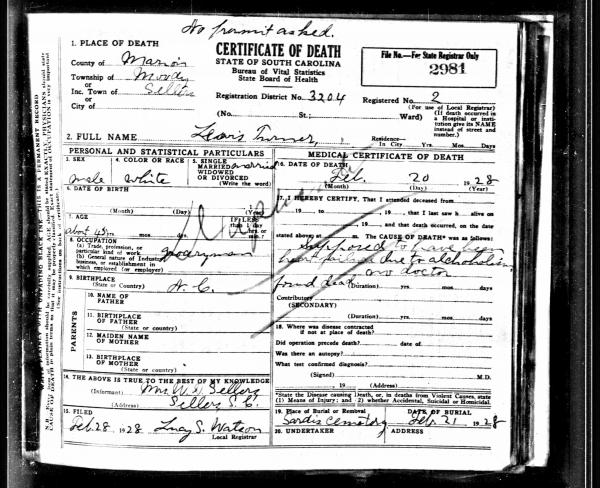 No permit asked.
1. PLACE OF DEATH
County of Marion
Township of Moody
or
Inc. Town of Sellers
or
City of
CERTIFICATE OF DEATH
STATE OF SOUTH CAROLINA
Bureau of Vital Statistics
State Board of Health
File No.—For State Registrar Only
2981
Registration District No. 3204
Registered No. 2
(For use of Local Registrar)
(No. St.; Ward)
(If death occurred in a Hospital or Institution give its NAME instead of street and number.)
2. FULL NAME Lewis Turner,
Residence—
In City Yrs. Mos. Days
PERSONAL AND STATISTICAL PARTICULARS
3. SEX
male
4. COLOR OR RACE
white
5. SINGLE
MARRIED married
WIDOWED
OR DIVORCED
(Write the word)
6. DATE OF BIRTH
(Month) (Day) (Year)
7. AGE
about 45 yrs. mos. days
IF LESS than 1 day
hrs. or min.?
8. OCCUPATION
(a) Trade, profession, or
particular kind of work
(b) General nature of Industry
business, or establishment in
which employed (or employer)
9. BIRTHPLACE N. C.
(State or country)
PARENTS
10. NAME OF
FATHER
11. BIRTHPLACE
OF FATHER
(State or country)
12. MAIDEN NAME
OF MOTHER
13. BIRTHPLACE
OF MOTHER
(State or country)
14. THE ABOVE IS TRUE TO THE BEST OF MY KNOWLEDGE
(Informant) Mrs. W. H. Sellers
(Address) Sellers S. C.
15. FILED
Feb. 28, 1928 Lucy S. Watson
Local Registrar
MEDICAL CERTIFICATE OF DEATH
16. DATE OF DEATH
Feb. 20 1928
(Month) (Day) (Year)
17. I HEREBY CERTIFY, That I attended deceased from
19 to 19, that I last saw h alive on
19 and that death occurred, on the date
stated above, at m. The CAUSE OF DEATH* was as follows:
Supposed to have been
heart failure due to alcoholism
no doctor
found dead (Duration) yrs. mos. days
Contributory
(SECONDARY)
(Duration) yrs. mos. days
18. Where was disease contracted
if not at place of death?
Did operation precede death? date of
Was there an autopsy?
What test confirmed diagnosis?
(Signed) M.D.
, 19 (Address)
*State the Disease causing Death, or, in deaths from Violent Causes, state
(1) Means of Injury; and 2) whether Accidental, Suicidal or Homicidal.
19. Place of Burial or Removal
Sardis Cemetery
DATE OF BURIAL
Feb. 21 1928
20. UNDERTAKER ADDRESS